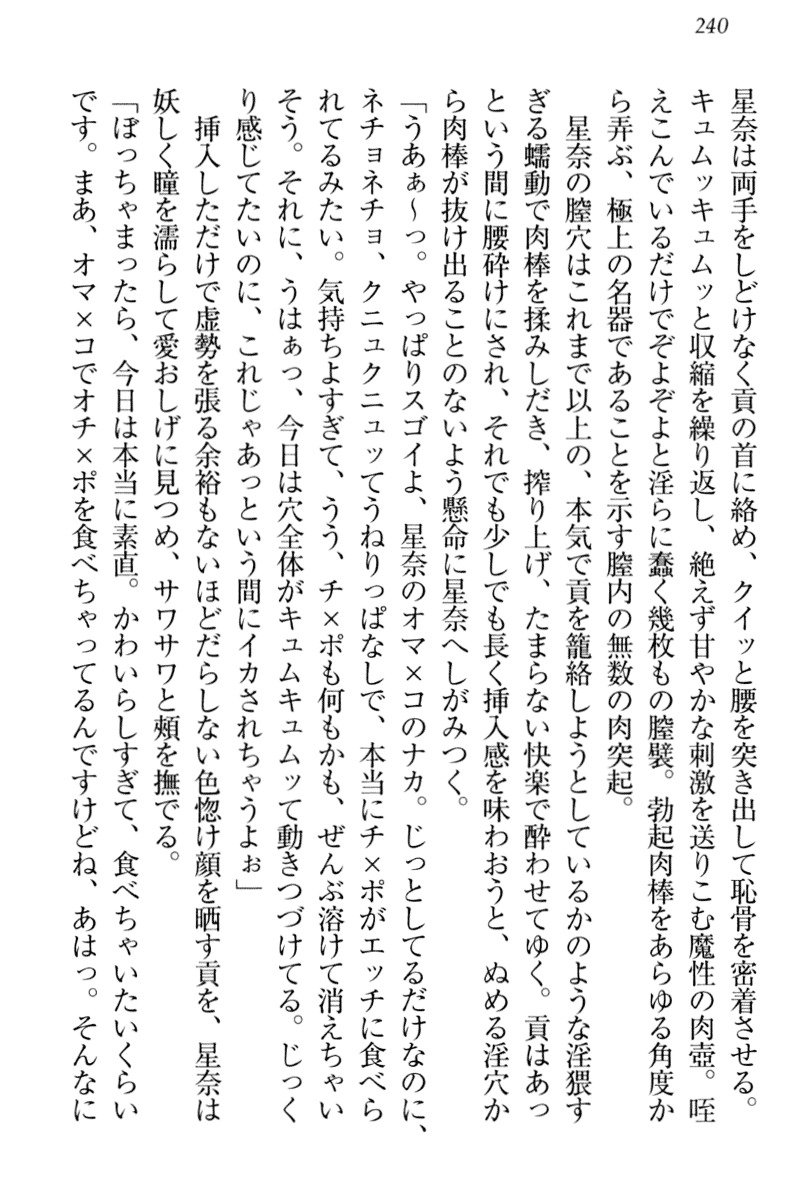 240
星奈は両手をしどけなく貢の首に絡め、クイッと腰を突き出して恥骨を密着させる。
キュムッキュムッと収縮を繰り返し、絶えず甘やかな刺激を送りこむ魔性の肉壺。咥
えこんでいるだけでぞよぞよと淫らに蠢く幾枚もの膣襞。勃起肉棒をあらゆる角度か
ら弄ぶ、極上の名器であることを示す膣内の無数の肉突起。
　星奈の膣穴はこれまで以上の、本気で貢を籠絡しようとしているかのような淫猥す
ぎる蠕動で肉棒を揉みしだき、搾り上げ、たまらない快楽で酔わせてゆく。貢はあっ
という間に腰砕けにされ、それでも少しでも長く挿入感を味わおうと、ぬめる淫穴か
ら肉棒が抜け出ることのないよう懸命に星奈へしがみつく。
「うあぁ～っ。やっぱりスゴイよ、星奈のオマ×コのナカ。じっとしてるだけなのに、
ネチョネチョ、クニュクニュッてうねりっぱなしで、本当にチ×ポがエッチに食べら
れてるみたい。気持ちよすぎて、うう、チ×ポも何もかも、ぜんぶ溶けて消えちゃい
そう。それに、うはぁっ、今日は穴全体がキュムキュムッて動きつづけてる。じっく
り感じてたいのに、これじゃあっという間にイカされちゃうよぉ」
　挿入しただけで虚勢を張る余裕もないほどだらしない色惚け顔を晒す貢を、星奈は
妖しく瞳を濡らして愛おしげに見つめ、サワサワと頰を撫でる。
「ぼっちゃまったら、今日は本当に素直。かわいらしすぎて、食べちゃいたいくらい
です。まあ、オマ×コでオチ×ポを食べちゃってるんですけどね、あはっ。そんなに